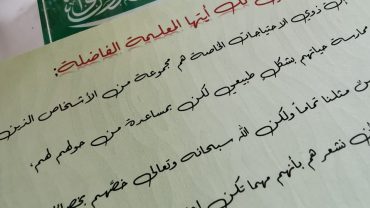 لك أيتها المعلمة الفاضلة:
ذوي الاحتياجات الخاصة هم مجموعة من الأشخاص الذين
ممارسة حياتهم بشكل طبيعي لكن بمساعدة من حولهم لهم،
مثلنا تماماً ولكن الله سبحانه وتعالى خصّهم
نشعر هم بأنهم مهما تكن